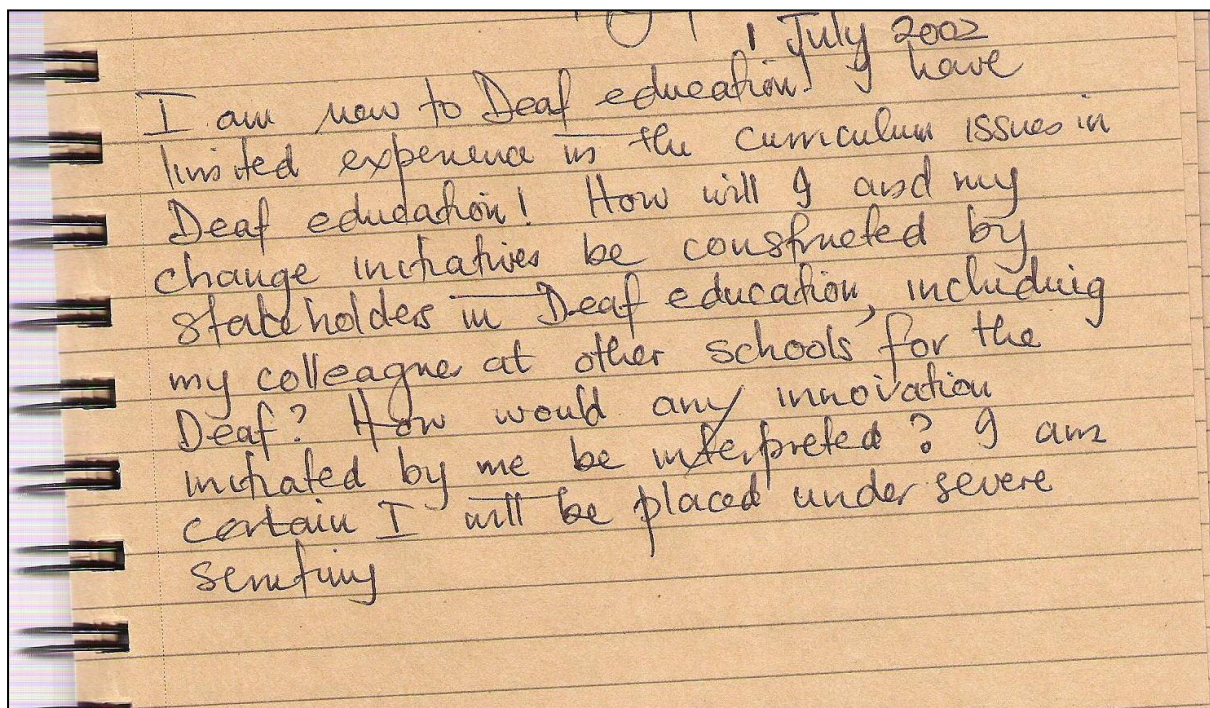 1 July 2002
I am new to Deaf education! I have
limited experience in the curriculum issues in
Deaf education! How will I and my
change initiatives be constructed by
stakeholders in Deaf education, including
my colleagues at other schools for the
Deaf? How would any innovation
initiated by me be interpreted? I am
certain I will be placed under severe
scrutiny